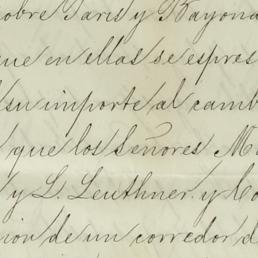 sobre Paris y Bayona
que en ellas se espres
su importe al camb
que los Señores M
y L. Leuthner y Co
ion de un corredor d